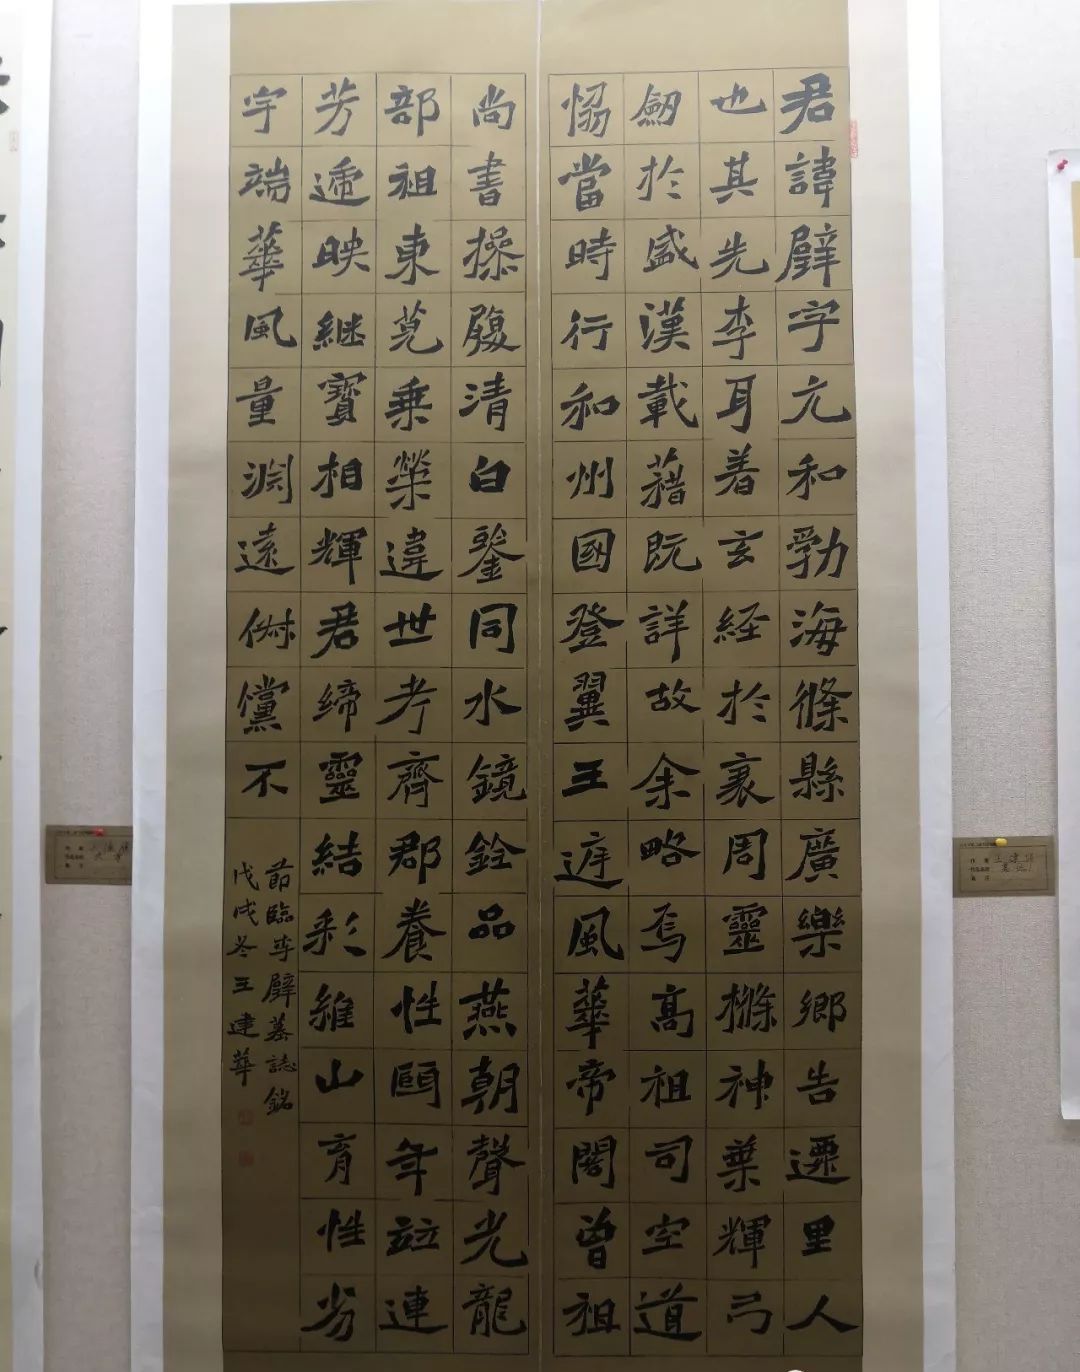 君諱璧字元和勃海蓨縣廣樂鄉吉遷里人
也其先李耳着玄經於衰周靈櫾神葉輝弓
劒於盛漢載藉既詳故余略焉高祖司空道
愶當時行和州國登翼王遊風華帝閣曽祖
尚書操履清白鑒同水鏡銓品燕朝聲光龍
部祖東莞乗榮違世考齊郡養性頤年竝連
芳遞映継寶相輝君締靈結彩維山育性劣
宇端華風量淵遠倜儻不
莭臨李璧墓誌銘
戊戌冬王建華